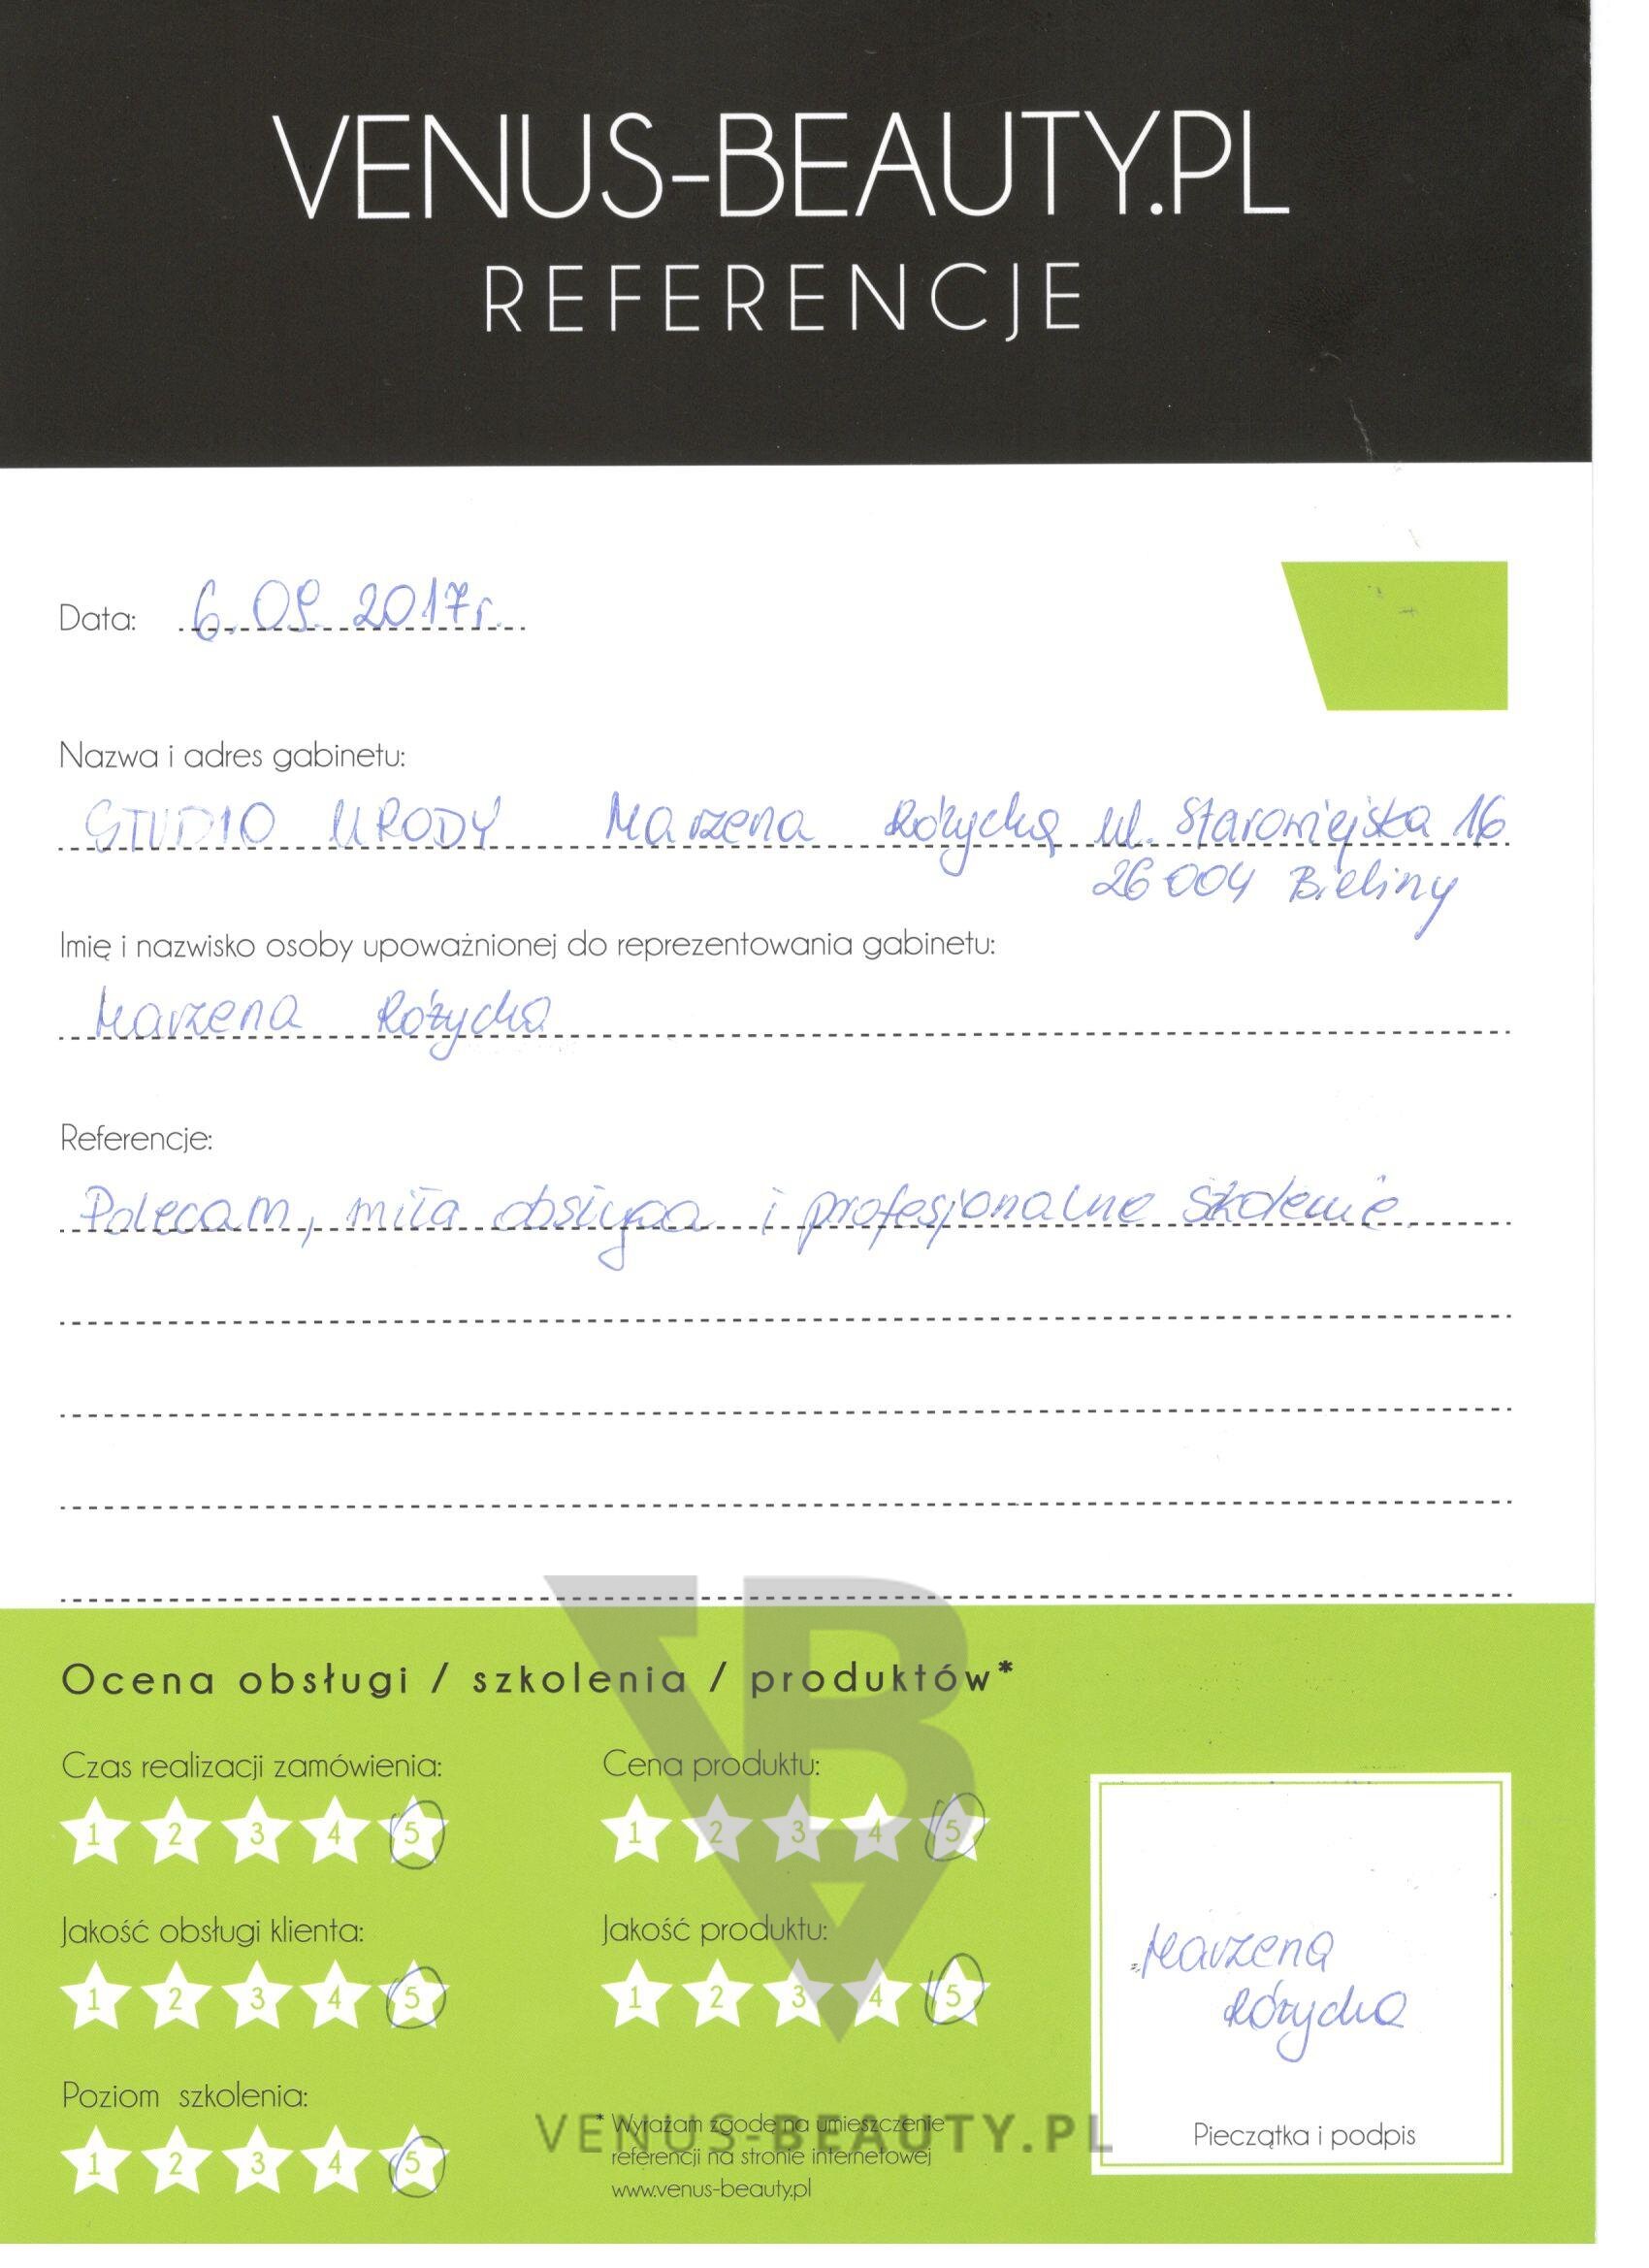 VENUS-BEAUTY.PL
REFERENCJE
Data: 6.09.2017r.
Nazwa i adres gabinetu:
STUDIO URODY Marzena Różycka ul. Starowiejska 16
26004 Bieliny
Imię i nazwisko osoby upoważnionej do reprezentowania gabinetu:
Marzena Różycka
Referencje:
Polecam, miła obsługa i profesjonalne szkolenie.
Ocena obsługi / szkolenia / produktów*
Czas realizacji zamówienia: Cena produktu:
1 2 3 4 5 1 2 3 4 5
Jakość obsługi klienta: Jakość produktu:
1 2 3 4 5 1 2 3 4 5
Marzena
Różycka
Poziom szkolenia:
1 2 3 4 5
* Wyrażam zgodę na umieszczenie
referencji na stronie internetowej
www.venus-beauty.pl
Pieczątka i podpis
VENUS-BEAUTY.PL